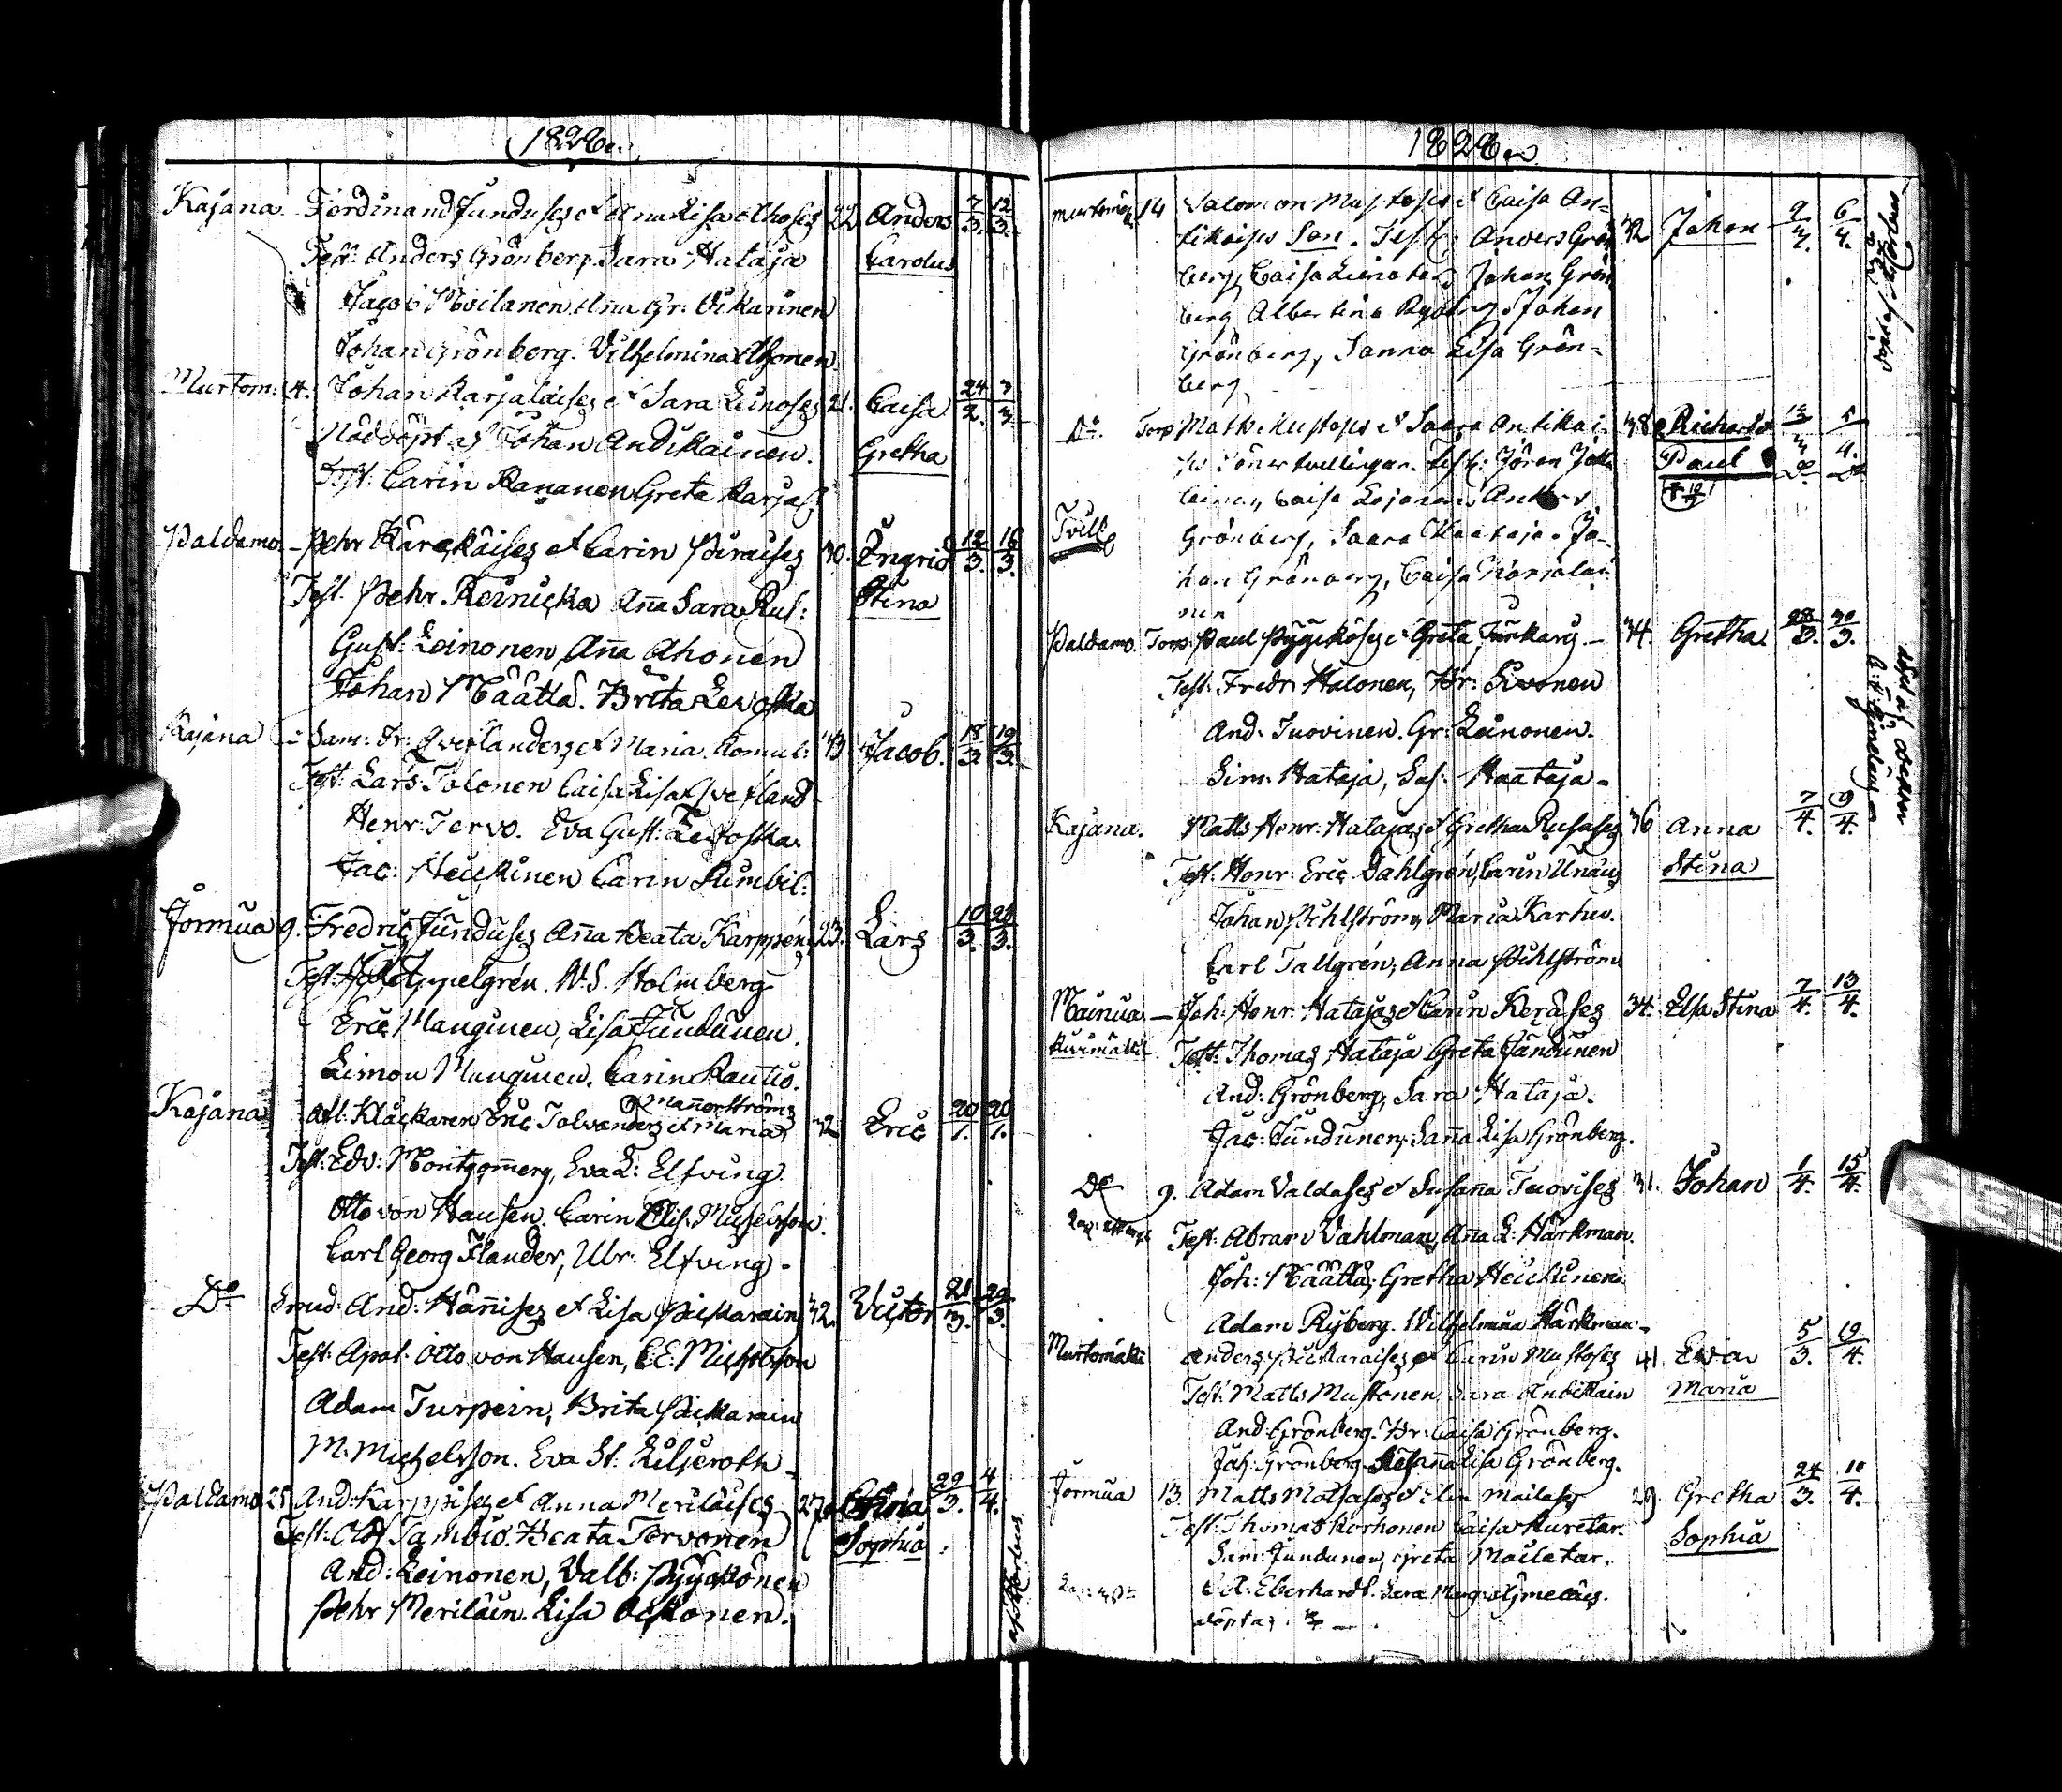 1828
Kajana. Ferdinand Junduses et Ana Lisa Ahoses 22. Anders 7/3. 12/3.
Test: Anders Grönberg. Sara Hataja Carolus
Jacob Moilanen Ana Gr: Pikarinen
Johan Grönberg. Vilhelmina Ahonen
Murtom: 4. Johan Karjalaises et Sara Leinoses 21. Caisa 24/2. 3/3.
Nöddöpt af Johan Andikainen. Gretha
Test: Carin Kananen Greta Karjal:
Paldamo – Pehr Kärckäises et Carin Piraises 40. Ingrid 12/3. 16/3.
Test. Pehr Reinicka Aña Sara Rus: Stina
Gust: Leinonen Aña Ahonen
Johan Määtta. Brita Levoska
Kajana – Sam: Fr: Qvetlanders et Maria Komul: 43. Jacob. 18/3. 19/3.
Test: Lars Tolonen Caisa Lisa Qvetland
Henr: Tervo. Eva Gust: Levoska.
Jac: Heickinen Carin Kumbil:
Jormua 9. Fredric Junduses Aña Beata Karppen: 23. Lars 10/3. 23/3.
Test: Appelgrén. W. S. Holmberg
Eric Manginen, Lisa Jundunen.
Simon Manginen. Carin Rautio.
Mañerströms
Kajana Afl. Klåckaren Eric Tolvanders et Maria 42 Eric 20/1. 20/1.
Test: Edv: Montgomery, Eva E: Elfving
Otto von Hausen. Carin Elis: Michelsson.
Carl Georg Flander, Ulr: Elfving –
Do Smed: And: Häñises et Lisa Pickarain 32. Victor 21/3. 29/3.
Test: Apot: Otto von Hausen, C: E: Michelsson
Adam Turpein, Brita Pickarain
M: Michelsson. Eva St: Liljeroth –
Paldamo 25 And: Karppises et Anna Meriläises 27. Stina 29/3. 4/4.
Test: Olof Tambio. Beata Tervonen Sophia
And: Leinonen, Valb: Pyykkönen
Pehr Meriläin. Lisa Oikonen.
1828
Murtomäki 14 Salomon Mustoses et Caisa An- 32 Johan 9/4. 6/4.
tikaises Son. Test: Anders Grön
berg, Caisa Leinotar, Johan Grön
berg Albertina Ryberg, Johan
Grönberg, Sanna Lisa Grön-
berg
Do. Torp Matts Mustoses et Saara Antikai- 38 Richard 13/3 5/4.
ses Söner tvillingar. Test: Jören Jokk Paul Do Do
Caisa Lejonen, Anders
Tvill Grönberg, Saara Haataja. Jo-
han Grönberg, Caisa Karjalai-
nen
Paldamo. Torp. Paul Pyykköses et Greta Turkas – 34. Gretha. 28/3. 30/3.
Test: Fredr: Halonen, Br: Sivonen
And: Juovinen. Gr: Leinonen.
Sim: Hataja, Sas: Haataja –
Kajana. Matts Henr: Hatajas et Gretha Rusases 36 Anna 7/4. 9/4.
Test: Henr: Eric Dahlgrén, Carin Unäus Stina
Johan Pihlström, Maria Karhu.
Carl Tallgrén, Anna Pihlström
Mainua – Joh: Henr: Hatajas et Carin Keräses 34. Elsa Stina 7/4. 13/4.
Kivimäki Test: Thomas Hataja Greta Jundunen
And: Grönberg, Sara Hataja.
Jac: Jundunen, Sañna Lisa Grönberg.
Do 9. Adam Valdases et Susaña Tuovises 31. Johan 1/4. 15/4.
Test: Abram Vahlman, Aña L: Härkman
Joh: Määtta, Gretha Heickinen.
Adam Ryberg. Wilhelmina Härkman –
Murtomäki Anders Pickaraises et Carin Mustoses 41. Ewa 5/3. 19/4.
Test: Matts Mustonen Sara Andikain Maria
And: Grönberg. Br: Caisa Grönberg.
Joh: Grönberg Sañna Lisa Grönberg.
Jormua 13. Matts Matsases et Elin Mailases 29. Gretha 24/3. 10/4.
Test: Thomas Korhonen Caisa Kuretar. Sophia
Sam: Jundunen, Greta Mailatar.
C. A: Eberhardt. Sara Marg: Hjmelæus.